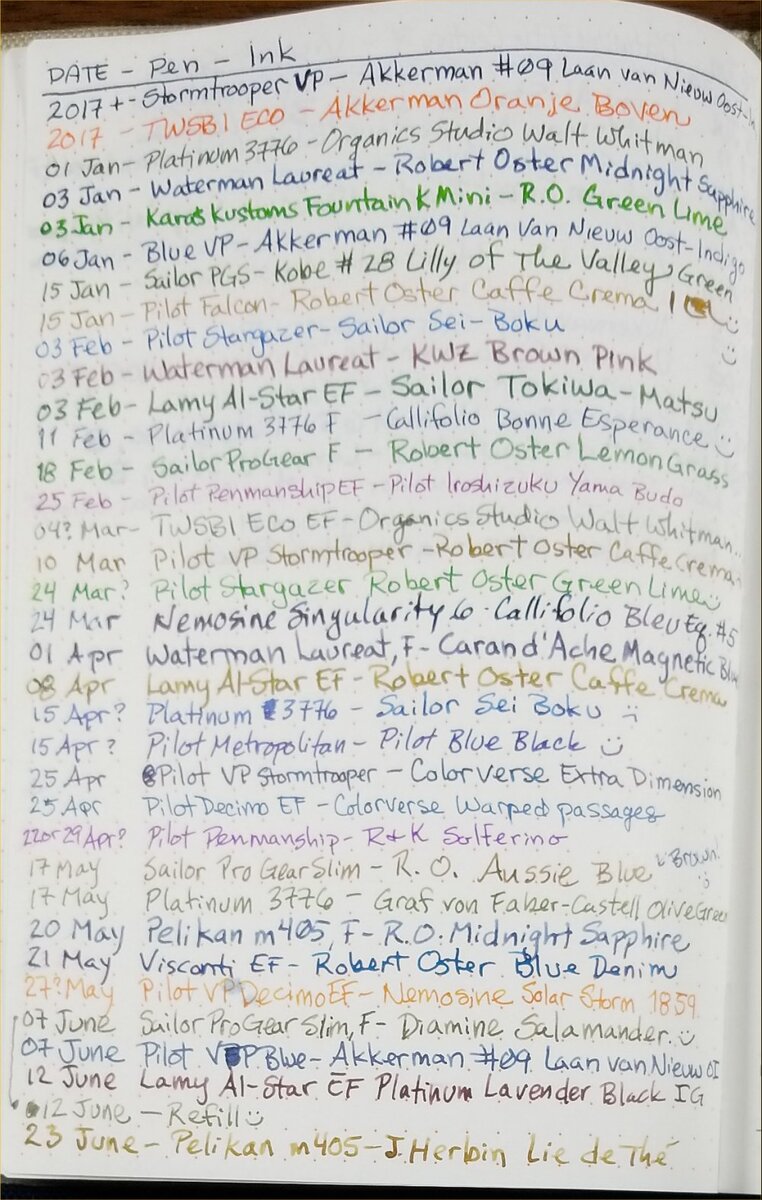 DATE - Pen - Ink
2017 + - Stormtrooper VP - Akkerman #09 Laan van Nieuw Oost-In
2017 - TWSBI ECO - Akkerman Oranje Boven
01 Jan - Platinum 3776 - Organics Studio Walt Whitman
03 Jan - Waterman Laureat - Robert Oster Midnight Sapphire
03 Jan - Karas Kustoms Fountain K Mini - R.O. Green Lime
06 Jan - Blue VP - Akkerman #09 Laan Van Nieuw Oost-Indigo
15 Jan - Sailor PGS - Kobe #28 Lilly of The Valley Green
15 Jan - Pilot Falcon - Robert Oster Caffe Crema
03 Feb - Pilot Stargazer - Sailor Sei-Boku
03 Feb - Waterman Laureat - KWZ Brown Pink
03 Feb - Lamy Al-Star EF - Sailor Tokiwa-Matsu
11 Feb - Platinum 3776 F - Callifolio Bonne Esperance
18 Feb - Sailor ProGear F - Robert Oster LemonGrass
25 Feb - Pilot Penmanship EF - Pilot Iroshizuku Yama Budo
04? Mar - TWSBI Eco EF - Organics Studio Walt Whitman
10 Mar Pilot VP Stormtrooper - Robert Oster Caffe Crema
24 Mar? Pilot Stargazer Robert Oster Green Lime
24 Mar Nemosine Singularity 6 - Callifolio Bleu Eq. #5
01 Apr Waterman Laureat, F - Carand'Ache Magnetic Blue
08 Apr Lamy Al-Star EF - Robert Oster Caffe Crema
15 Apr? Platinum 3776 - Sailor Sei Boku :)
15 Apr? Pilot Metropolitan - Pilot Blue Black :)
25 Apr Pilot VP Stormtrooper - Colorverse Extra Dimension
25 Apr Pilot Decimo EF - Colorverse Warped passages
22 or 29 Apr? Pilot Penmanship - R+K Solferino
17 May Sailor Pro Gear Slim - R.O. Aussie Blue "Brown"
17 May Platinum 3776 - Graf von Faber-Castell Olive Green
20 May Pelikan m405, F - R.O. Midnight Sapphire
21 May Visconti EF - Robert Oster Blue Denim
27? May Pilot VP Decimo EF - Nemosine Solar Storm 1859
07 June Sailor ProGear Slim, F - Diamine Salamander :)
07 June Pilot VP Blue - Akkerman #09 Laan van Nieuw OI
12 June Lamy Al-Star EF Platinum Lavender Black IG
12 June - Refill :)
23 June - Pelikan m405 - J. Herbin Lie de Thé